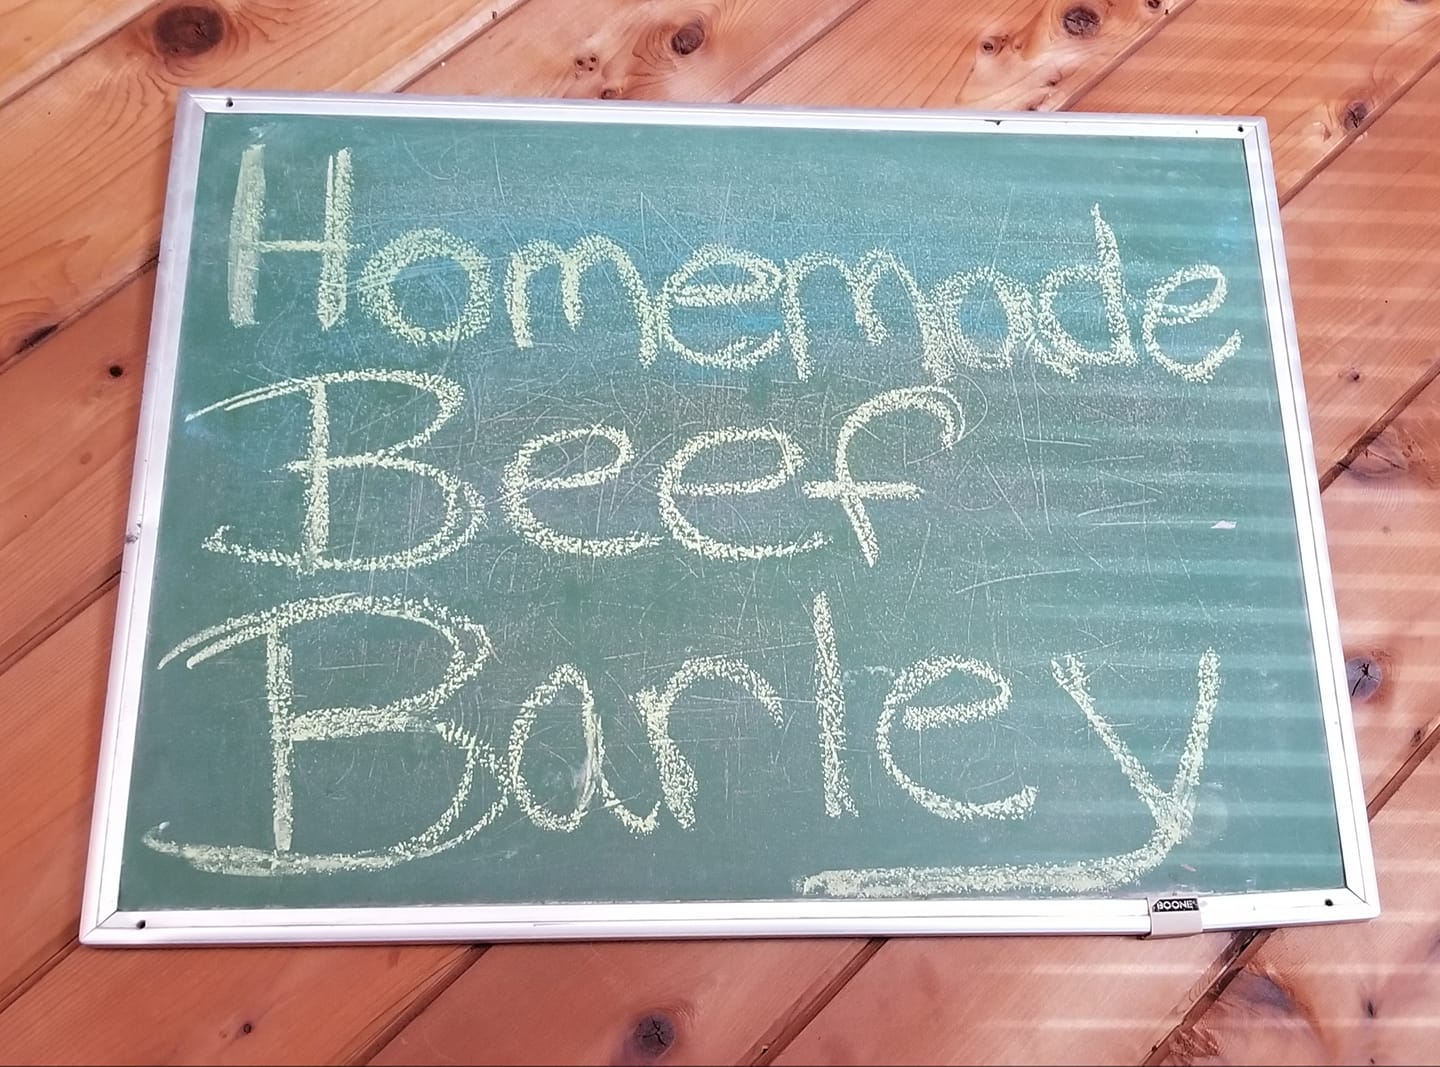 Homemade
Beef
Barley
BOONE